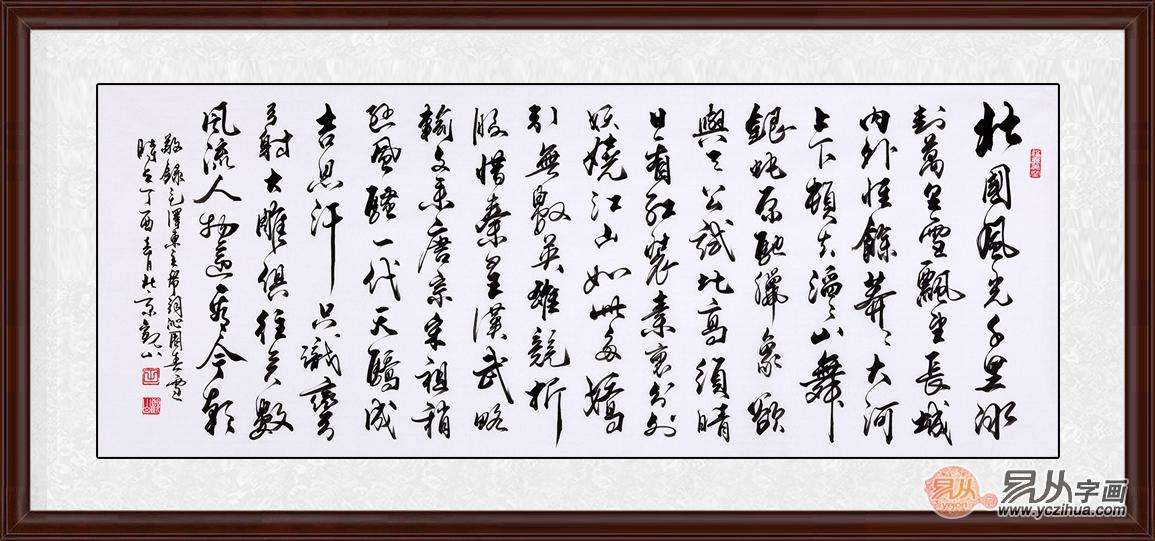 北國風光千里冰
封萬里雪飄望長城
内外惟餘莽々大河
上下頓失滔々山舞
銀蛇原馳臘象欲
與天公試比高須晴
日看紅裝素裹分外
妖嬈江山如此多嬌
引無數英雄競折
腰惜秦皇漢武略
輸文采唐宗宋祖稍
遜風騷一代天驕成
吉思汗只識彎
弓射大雕俱往矣數
風流人物還看今朝
敬録毛澤東主席詞沁園春雪
時在丁酉春月北京觀山
易从
易从字画
www.yczihua.com